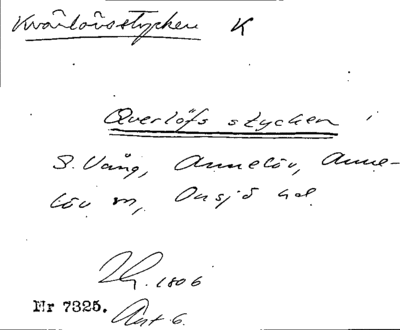 Kvärlövsstycken K
Qverlöfs stycken i
S. Vång, Annelöv, Anne-
löv sn, Onsjö hd.
1806
Nr 7325. Akt 6.